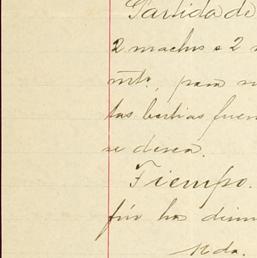 Partida de
2 machos e 2
mta, para
tas bestias fuer
se desea.
Tiempo.
fin ha dism
Nda.